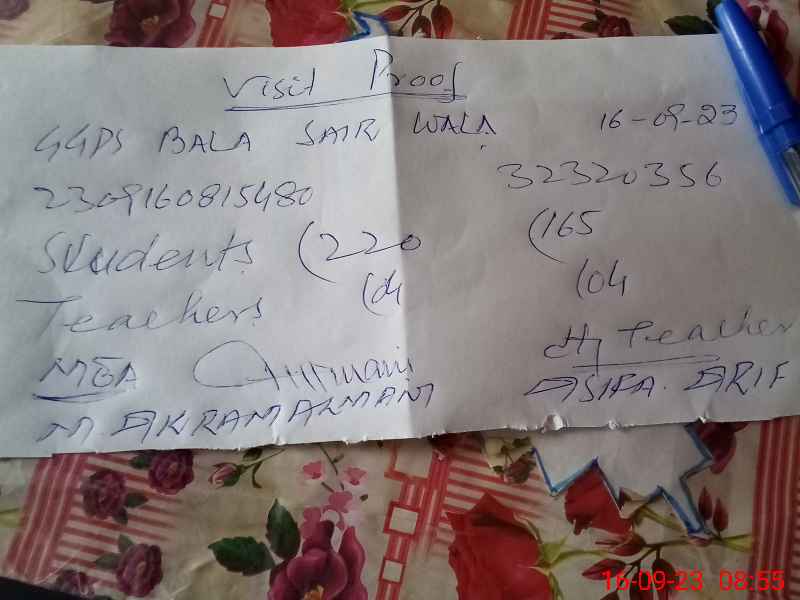 Visit Proof
GGPS BALA SAIR WALA 16-09-23
2309160815480 32320356
Students (220 (165
Teachers (04 (04
MEA H/Teacher
M. AKRAM ALMANI ASIFA. ARIF
16-09-23 08:55